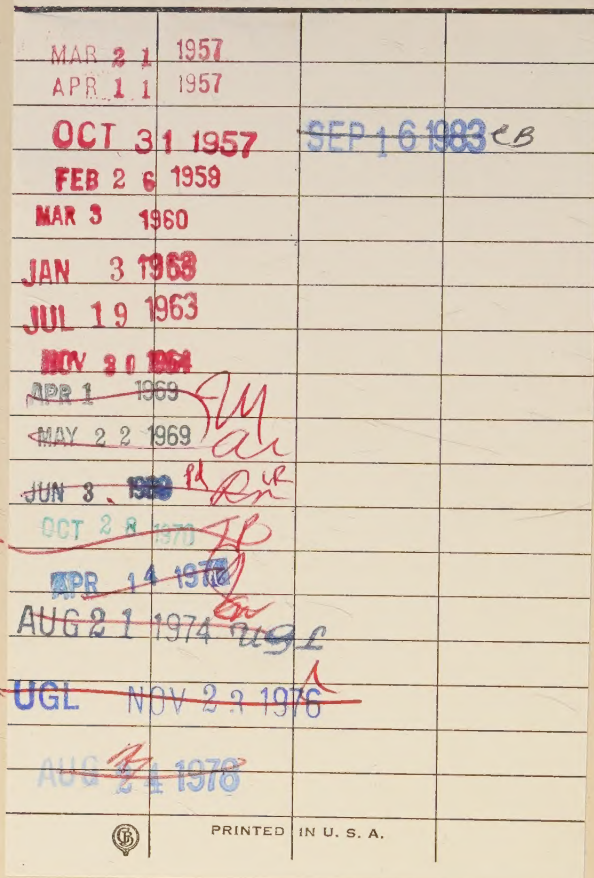 MAR 21 1957
APR 11 1957
OCT 31 1957
FEB 26 1959
MAR 3 1960
JAN 3 1963
JUL 19 1963
NOV 30 1964
APR 1 1969
MAY 22 1969
JUN 3
OCT 28 1970
APR 14
AUG 21 1974 UGL
UGL NOV 23 1976
AUG 24 1978
SEP 16 1983 CB
GB
PRINTED IN U. S. A.